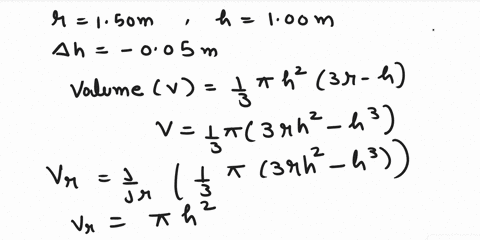 r = 1.50m , h = 1.00m
Δh = -0.05m
Valume (v) = 1/3 π h² (3r - h)
V = 1/3 π (3rh² - h³)
Vr = J/Jr (1/3 π (3rh² - h³))
Vr = π h²